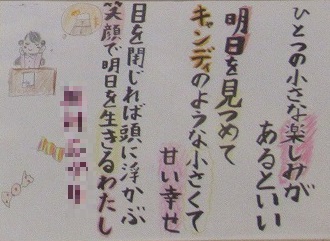 ひとつの小さな楽しみが
あるといい
明日を見つめて
キャンディのような小さくて
甘い幸せ
目を閉じれば頭に浮かぶ
笑顔で明日を生きるわたし